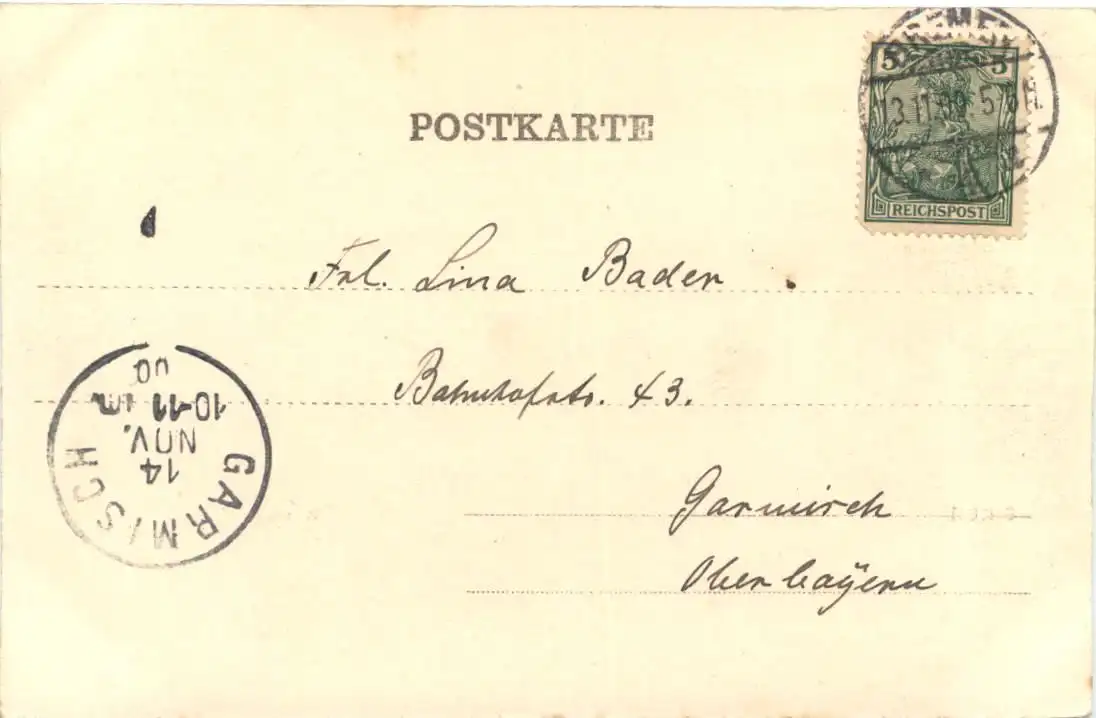 BREMEN
5 5
13.11.00. 5-6N.
REICHSPOST
POSTKARTE
Frl. Lina Bader
Bahnhofstr. 43.
Garmisch
Oberbayern
GARMISCH
14
NOV.
10-11 Vm.
00